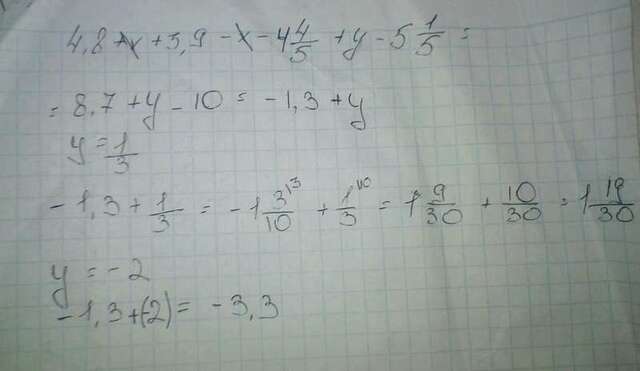 4,8 + x + 3,9 - x - 4 4/5 + y - 5 1/5 =
= 8,7 + y - 10 = -1,3 + y
y = 1/3
-1,3 + 1/3 = -1 3/10 ^3 + 1/3 ^10 = 1 9/30 + 10/30 = 1 19/30
y = -2
-1,3 + (-2) = -3,3